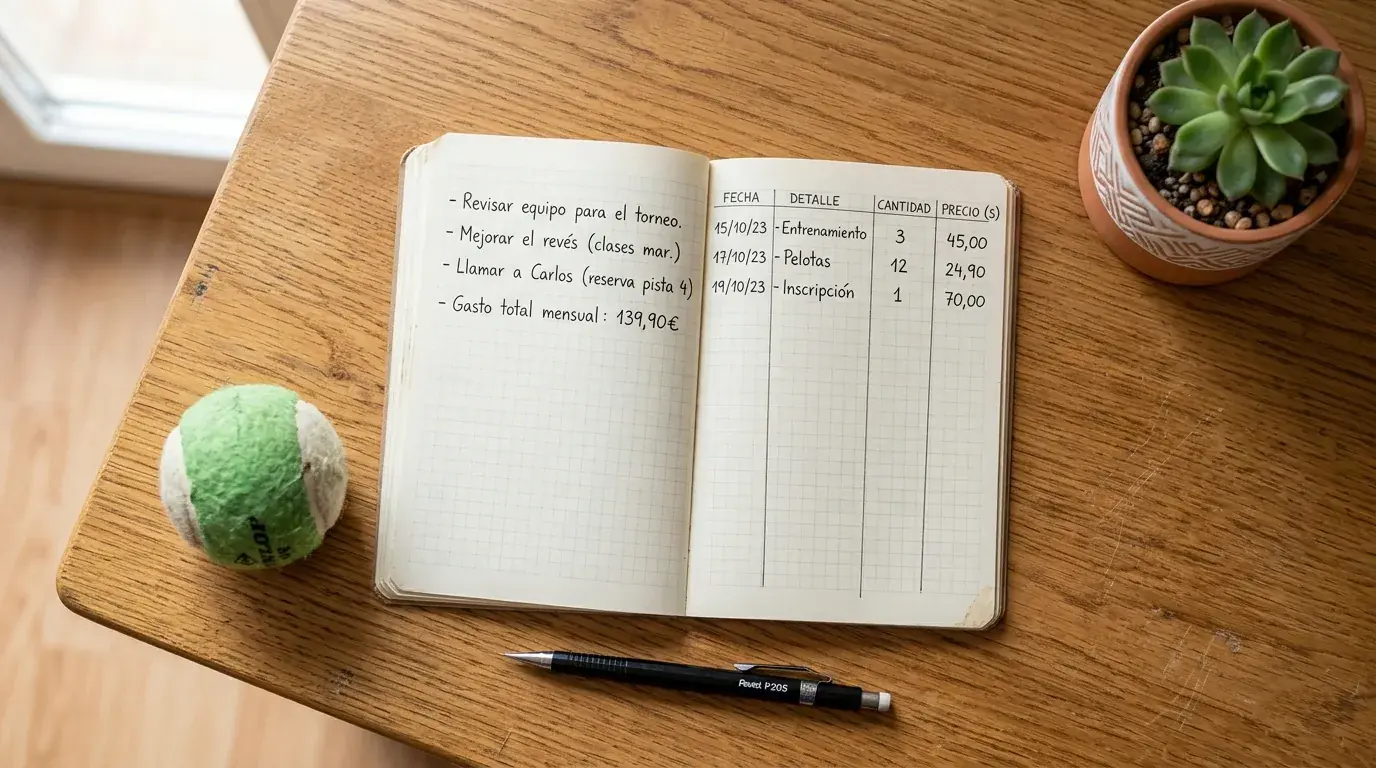 - Revisar equipo para el torneo.
- Mejorar el revés (clases mar.)
- Llamar a Carlos (reserva pista 4)
- Gasto total mensual: 139,90€
FECHA DETALLE CANTIDAD PRECIO (S)
15/10/23 - Entrenamiento 3 45,00
17/10/23 - Pelotas 12 24,90
19/10/23 - Inscripción 1 70,00
P205